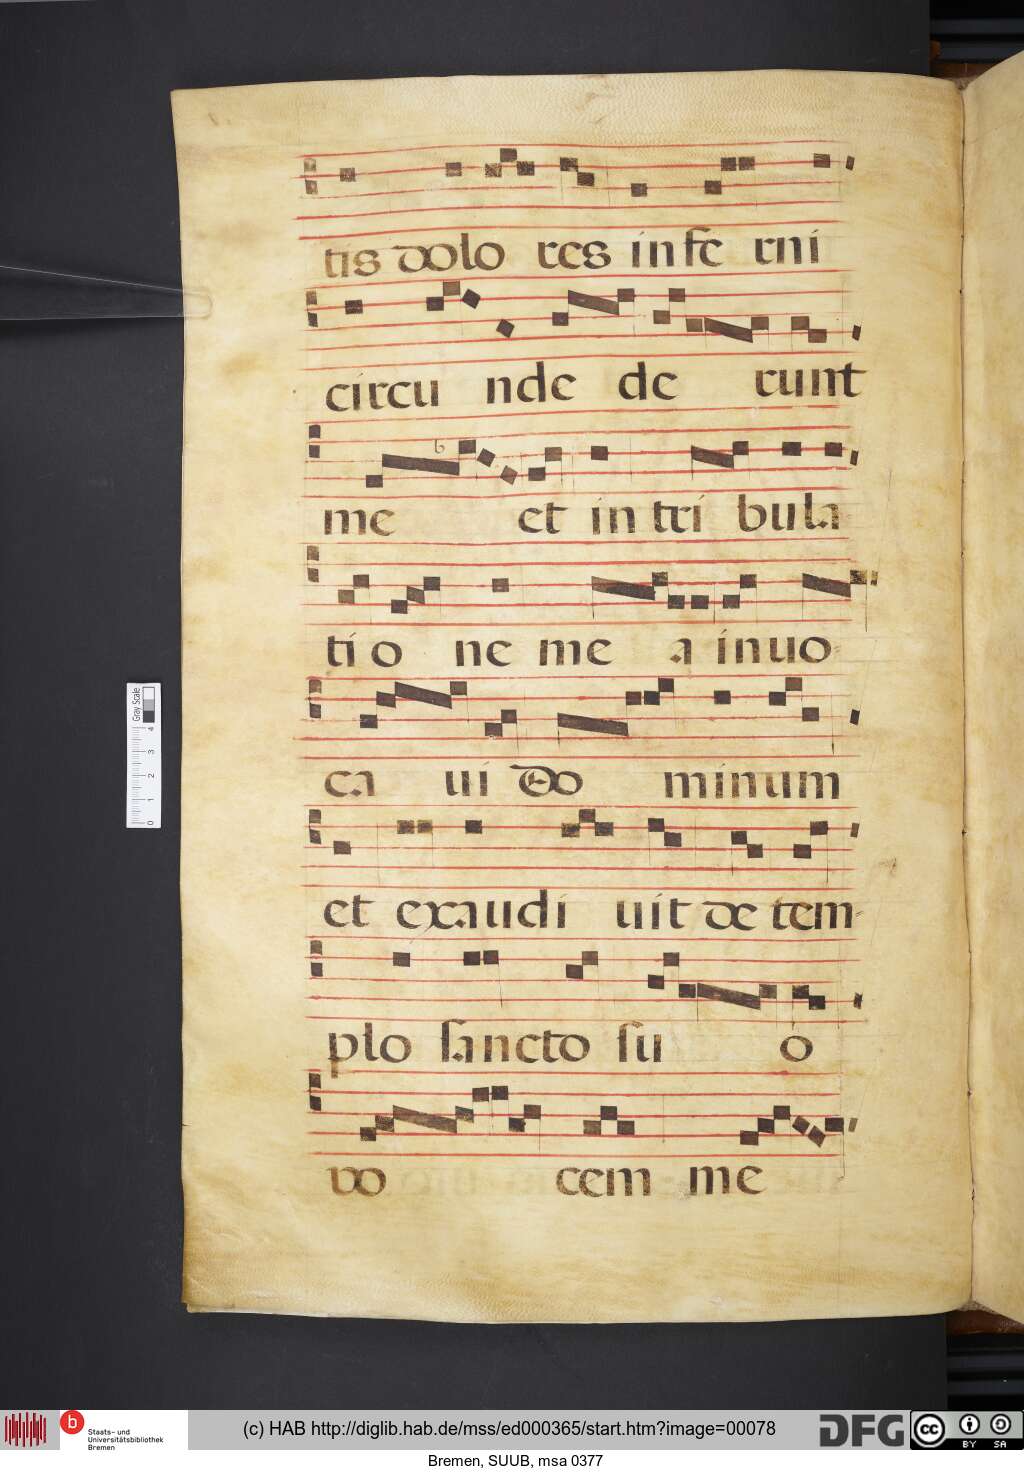 tis dolo res infe rni
circu nde de runt
me et in tri bula
b
ti o ne me a inuo
ca ui do minum
et exaudi uit de tem-
plo sancto su o
vo cem me
Gray Scale
4 3 2 1 0
b Staats- und
Universitätsbibliothek
Bremen
(c) HAB http://diglib.hab.de/mss/ed000365/start.htm?image=00078
DFG
cc BY SA
Bremen, SUUB, msa 0377